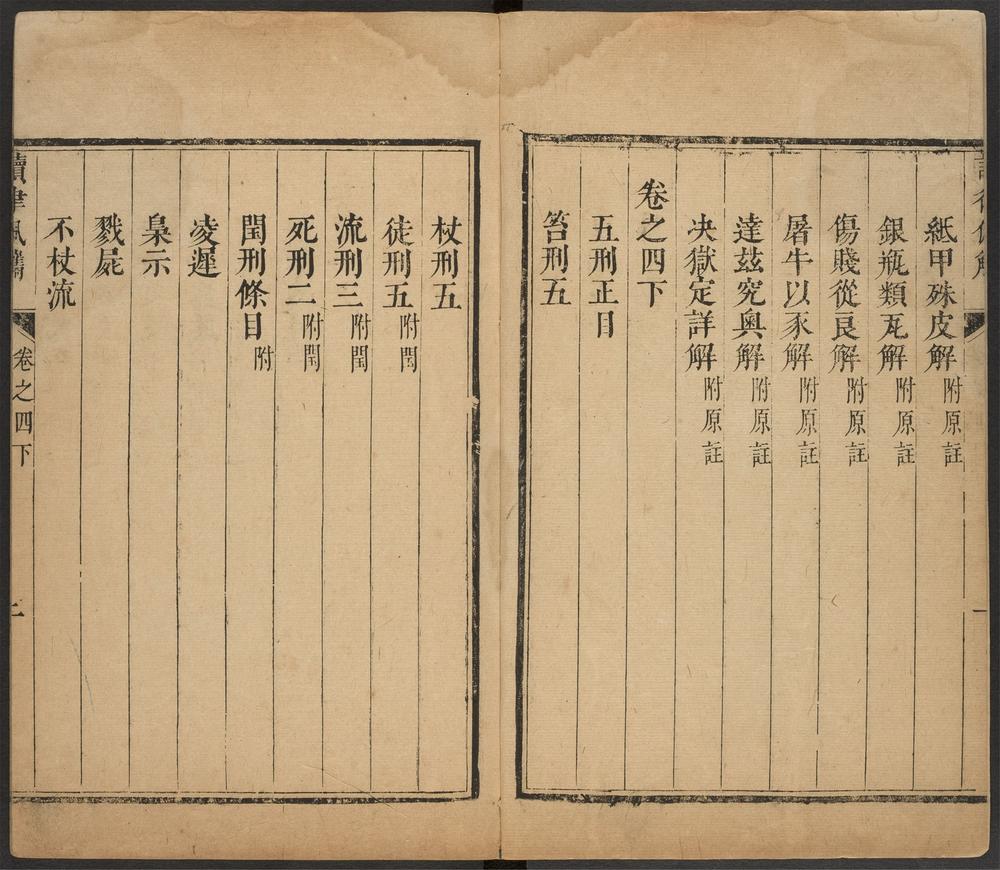 紙甲殊皮解附原註
銀瓶類瓦解附原註
傷賤從良解附原註
屠牛以豕解附原註
達茲究奧解附原註
决獄定詳解附原註
卷之四下
五刑正目
笞刑五
杖刑五
徒刑五附閏
流刑三附閏
死刑二附閏
閏刑條目附
凌遲
梟示
戮屍
不杖流
讀律佩觿
卷之四下
二